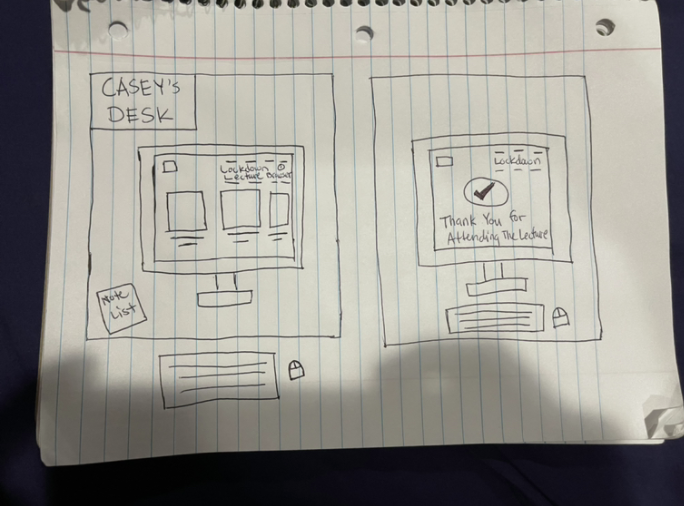 CASEY's
DESK
Lockdown
Lecture
Note
List
Lockdown
Thank You for
Attending The Lecture